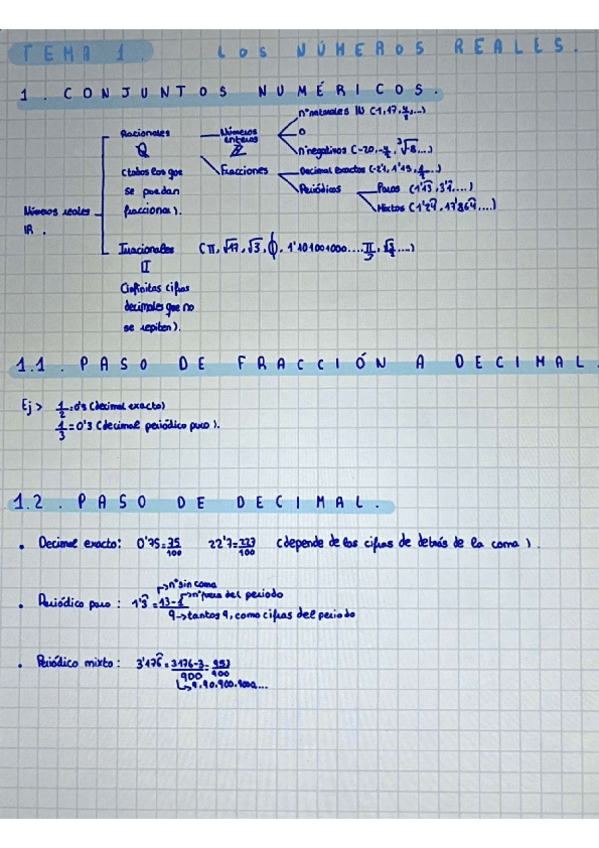 TEMA 1. LOS NÚMEROS REALES.
1. CONJUNTOS NUMÉRICOS.
Números reales
IR.
Racionales
Q
(todos los que
se puedan
fraccionar).
Números
enteros
Z
nºnaturales IN (1, 17, ...)
0
nºnegativos (-20, ³√-8, ...)
Fracciones
Decimal exactos (-2'1, 1'15, ...)
Periódicos
Puros
Mixtos
Irracionales (π, √17, √3, ϕ, 1'101001000....
II
(infinitas cifras
decimales que no
se repiten).
1.1. PASO DE FRACCIÓN A DECIMAL.
Ej > 1/2 = 0'5 (decimal exacto)
1/3 = 0'3 (decimal periódico puro).
1.2. PASO DE DECIMAL.
• Decimal exacto: 0'75 = 75/100 22'7 = /100 (depende de las cifras de detrás de la coma).
nº sin coma
nº fuera del periodo
• Periódico puro: 1'3 = 13-1
9 → tantos 9, como cifras del periodo
• Periódico mixto: 3'176 = 3176-3 =
900
9, 90, 900, 9000...